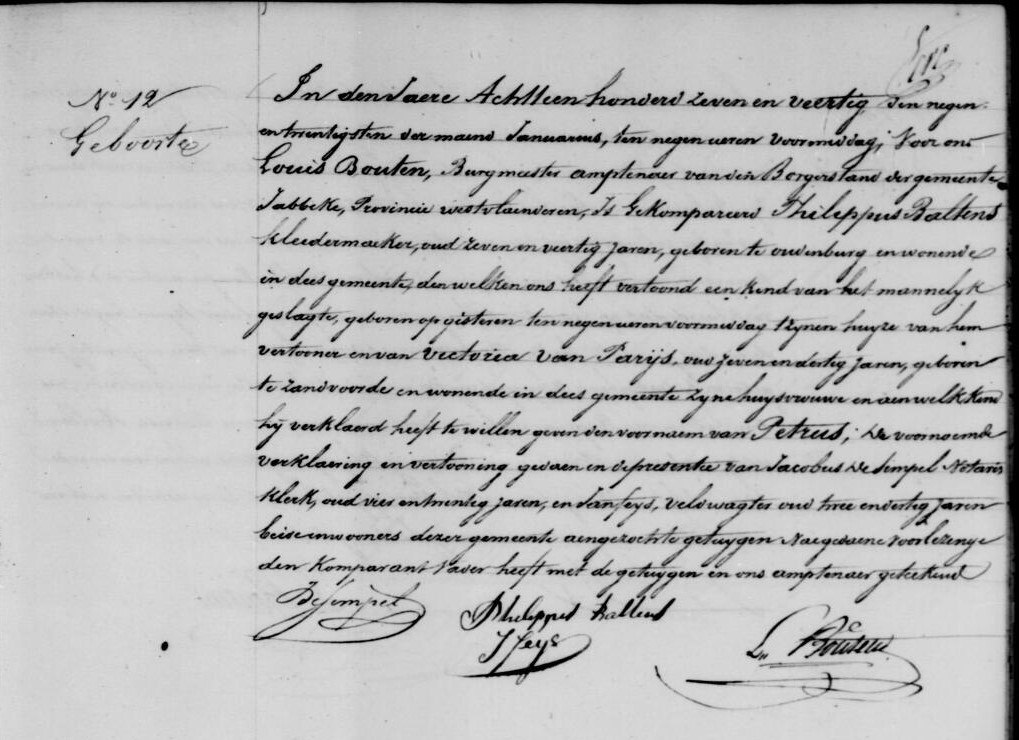 N° 12
Geboorte
In den Jaere Achtteen honderd zeven en veertig den negen
en twentigsten der maend Januarius, ten negen ueren voormiddag; Voor ons
Louis Bouten, Burgmeester amptenaer van den Borgerstand der gemeente
Jabbeke, Provincie westvlaenderen, Is Gekompareerd Philippus Baltens
kleedermaeker, oud zeven en veertig jaren, geboren te oudenburg en wonende
in dees gemeente, den welken ons heeft vertoond een kind van het mannelyk
geslagte, geboren op gisteren ten negen ueren voormiddag tzynen huyze van hem
vertooner en van Victoria van Parijs, oud zeven en dertig jaren, geboren
te Zandvoorde en wonende in dees gemeente zyne huysvrouwe en aen welk kind
hij verklaerd heeft te willen geven den voornaem van Petrus; de voornoemde
verklaering en vertooning gedaen in de presentie van Jacobus De Sempel Notaris
klerk, oud vier en twintig jaren, en Jan feys, veldwagter oud twee en dertig jaren
beide inwooners dezer gemeente aengezochte getuygen Nae gedaene voorlezinge
den Komparant vader heeft met de getuygen en ons amptenaer geteekend
DeSempel
Philippus Baltens
J feys
Ls Bouten